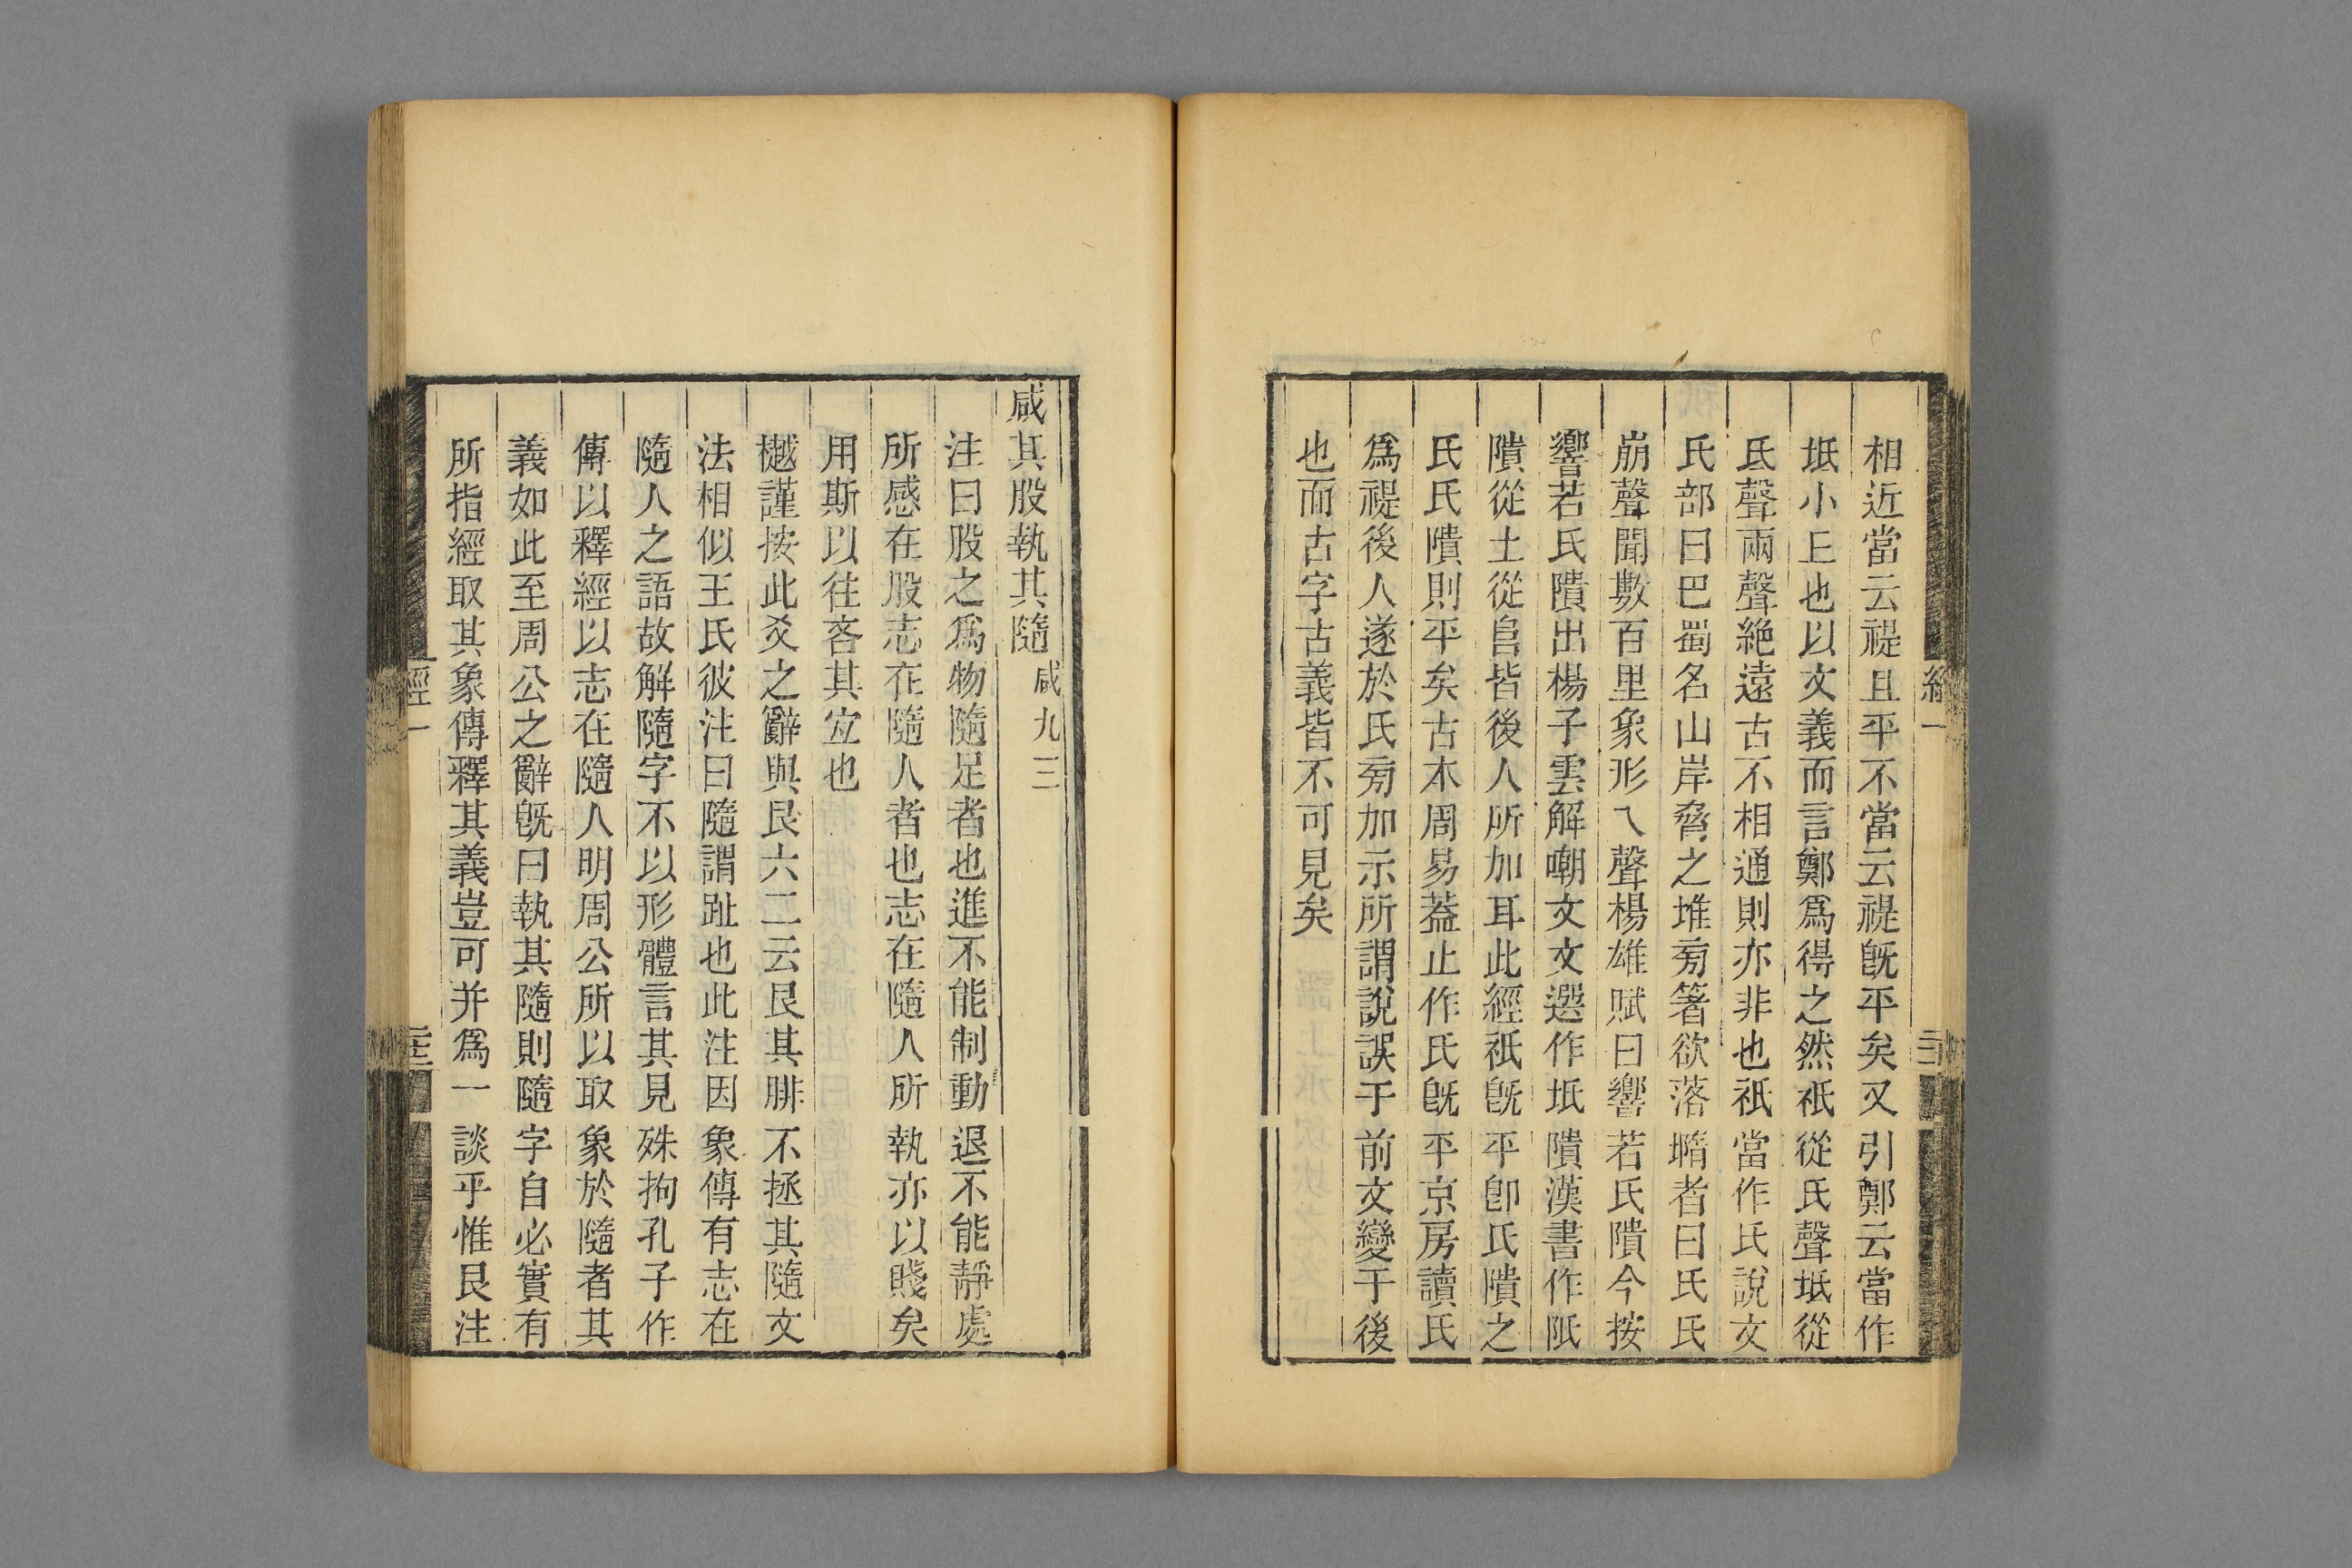 相近當云禔且平不當云禔旣平矣又引鄭云當作
坻小𠀉也以文義而言鄭爲得之然祇從氏聲坻從
氐聲兩聲絶遠古不相通則亦非也祇當作氏說文
氏部曰巴蜀名山岸脅之堆㫄箸欲落𡐦者曰氏氏
崩聲聞數百里象形乁聲楊雄賦曰響若氏隤今按
響若氏隤出楊子雲解嘲文文選作坻隤漢書作阺
隤從土從𨸏皆後人所加耳此經祇旣平卽氏隤之
氏氏隤則平矣古本周易葢止作氏旣平京房讀氏
爲禔後人遂於氏㫄加示所謂說誤于前文變于後
也而古字古義皆不可見矣
咸其股執其隨 咸九三
注曰股之爲物隨足者也進不能制動退不能靜處
所感在股志在隨人者也志在隨人所執亦以賤矣
用斯以往吝其宜也
樾謹按此爻之辭與艮六二云艮其腓不拯其隨文
法相似王氏彼注曰隨謂趾也此注因象傳有志在
隨人之語故解隨字不以形體言其見殊拘孔子作
傳以釋經以志在隨人明周公所以取象於隨者其
義如此至周公之辭旣曰執其隨則隨字自必實有
所指經取其象傳釋其義豈可并爲一談乎惟艮注
經一